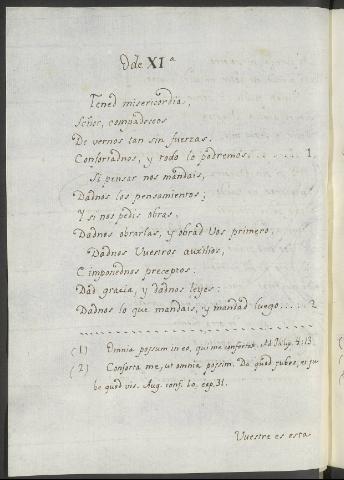 Ode XIª
Tened misericordia,
Señor, compadeceos
De vernos tan sin fuerzas.
Confortadnos, y todo lo podremos. ....... 1
Si pensar nos mandais,
Dadnos los pensamientos;
Y si nos pedis obras,
Dadnos obrarlas, y obrad Vos primero.
Dadnos Vuestros auxilios,
E imponednos preceptos:
Dad gracia, y dadnos leyes:
Dadnos lo que mandais, y mandad luego ..... 2
(1) Omnia possum in eo, qui me confortat. Ad Philip. 4. 13.
(2) Conforta me, ut omnia possim. Da quod jubes, et ju
be quod vis. Aug. conf. l. 10. cap. 31.
Vuestro es esta